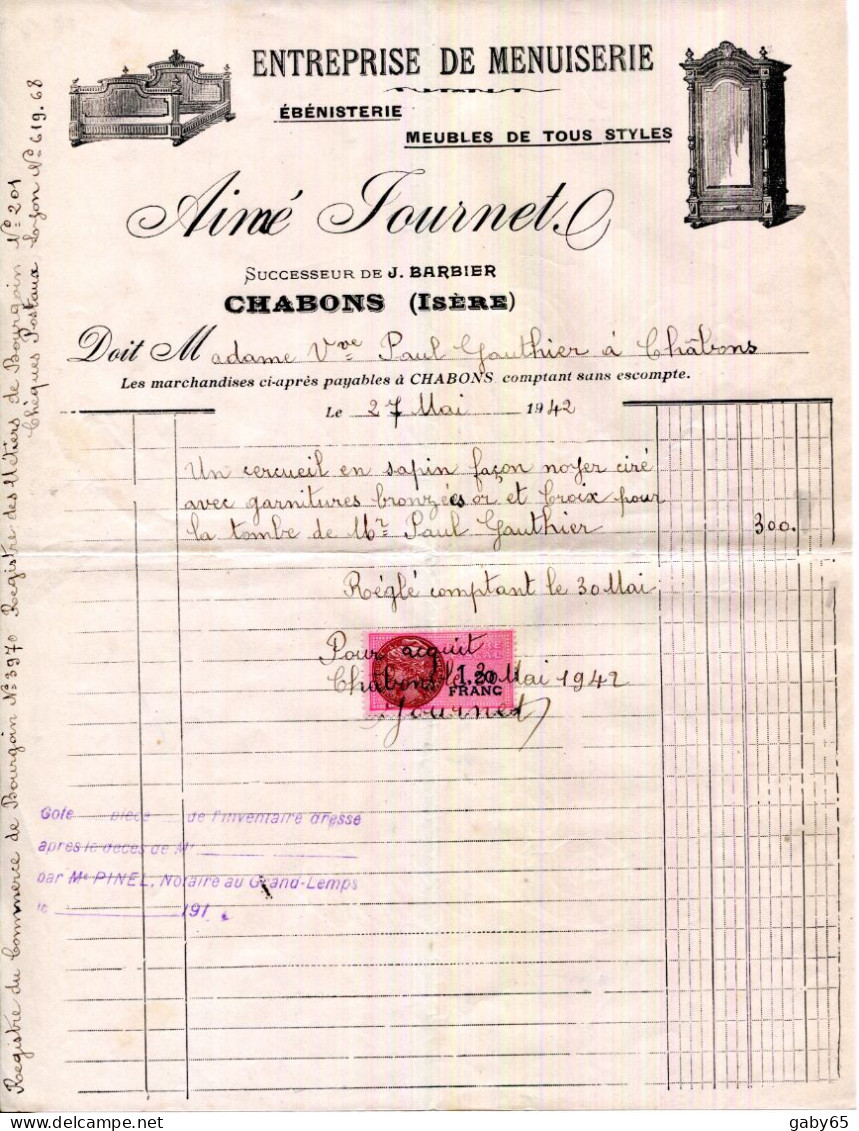 ENTREPRISE DE MENUISERIE
ÉBÉNISTERIE
MEUBLES DE TOUS STYLES
Aimé Journet
SUCCESSEUR DE J. BARBIER
CHABONS (ISÈRE)
Doit Madame Vve Paul Gauthier à Châbons
Les marchandises ci-après payables à CHABONS comptant sans escompte.
Le 27 Mai 1942
Un cercueil en sapin façon noyer ciré
avec garnitures bronzées or et Croix pour
la tombe de Mr Paul Gauthier 300.
Réglé comptant le 30 Mai
Pour acquit
Chabons le 30 Mai 1942
Journet
1,20
FRANC
Cote pièce de l'inventaire dressé
après le décès de Mr
par Me PINEL, Notaire au Grand-Lemps
le 191
Registre du Commerce de Bourgoin No 3970 Registre des Métiers de Bourgoin No 201
Chèques Postaux Lyon No 619.68
gaby65